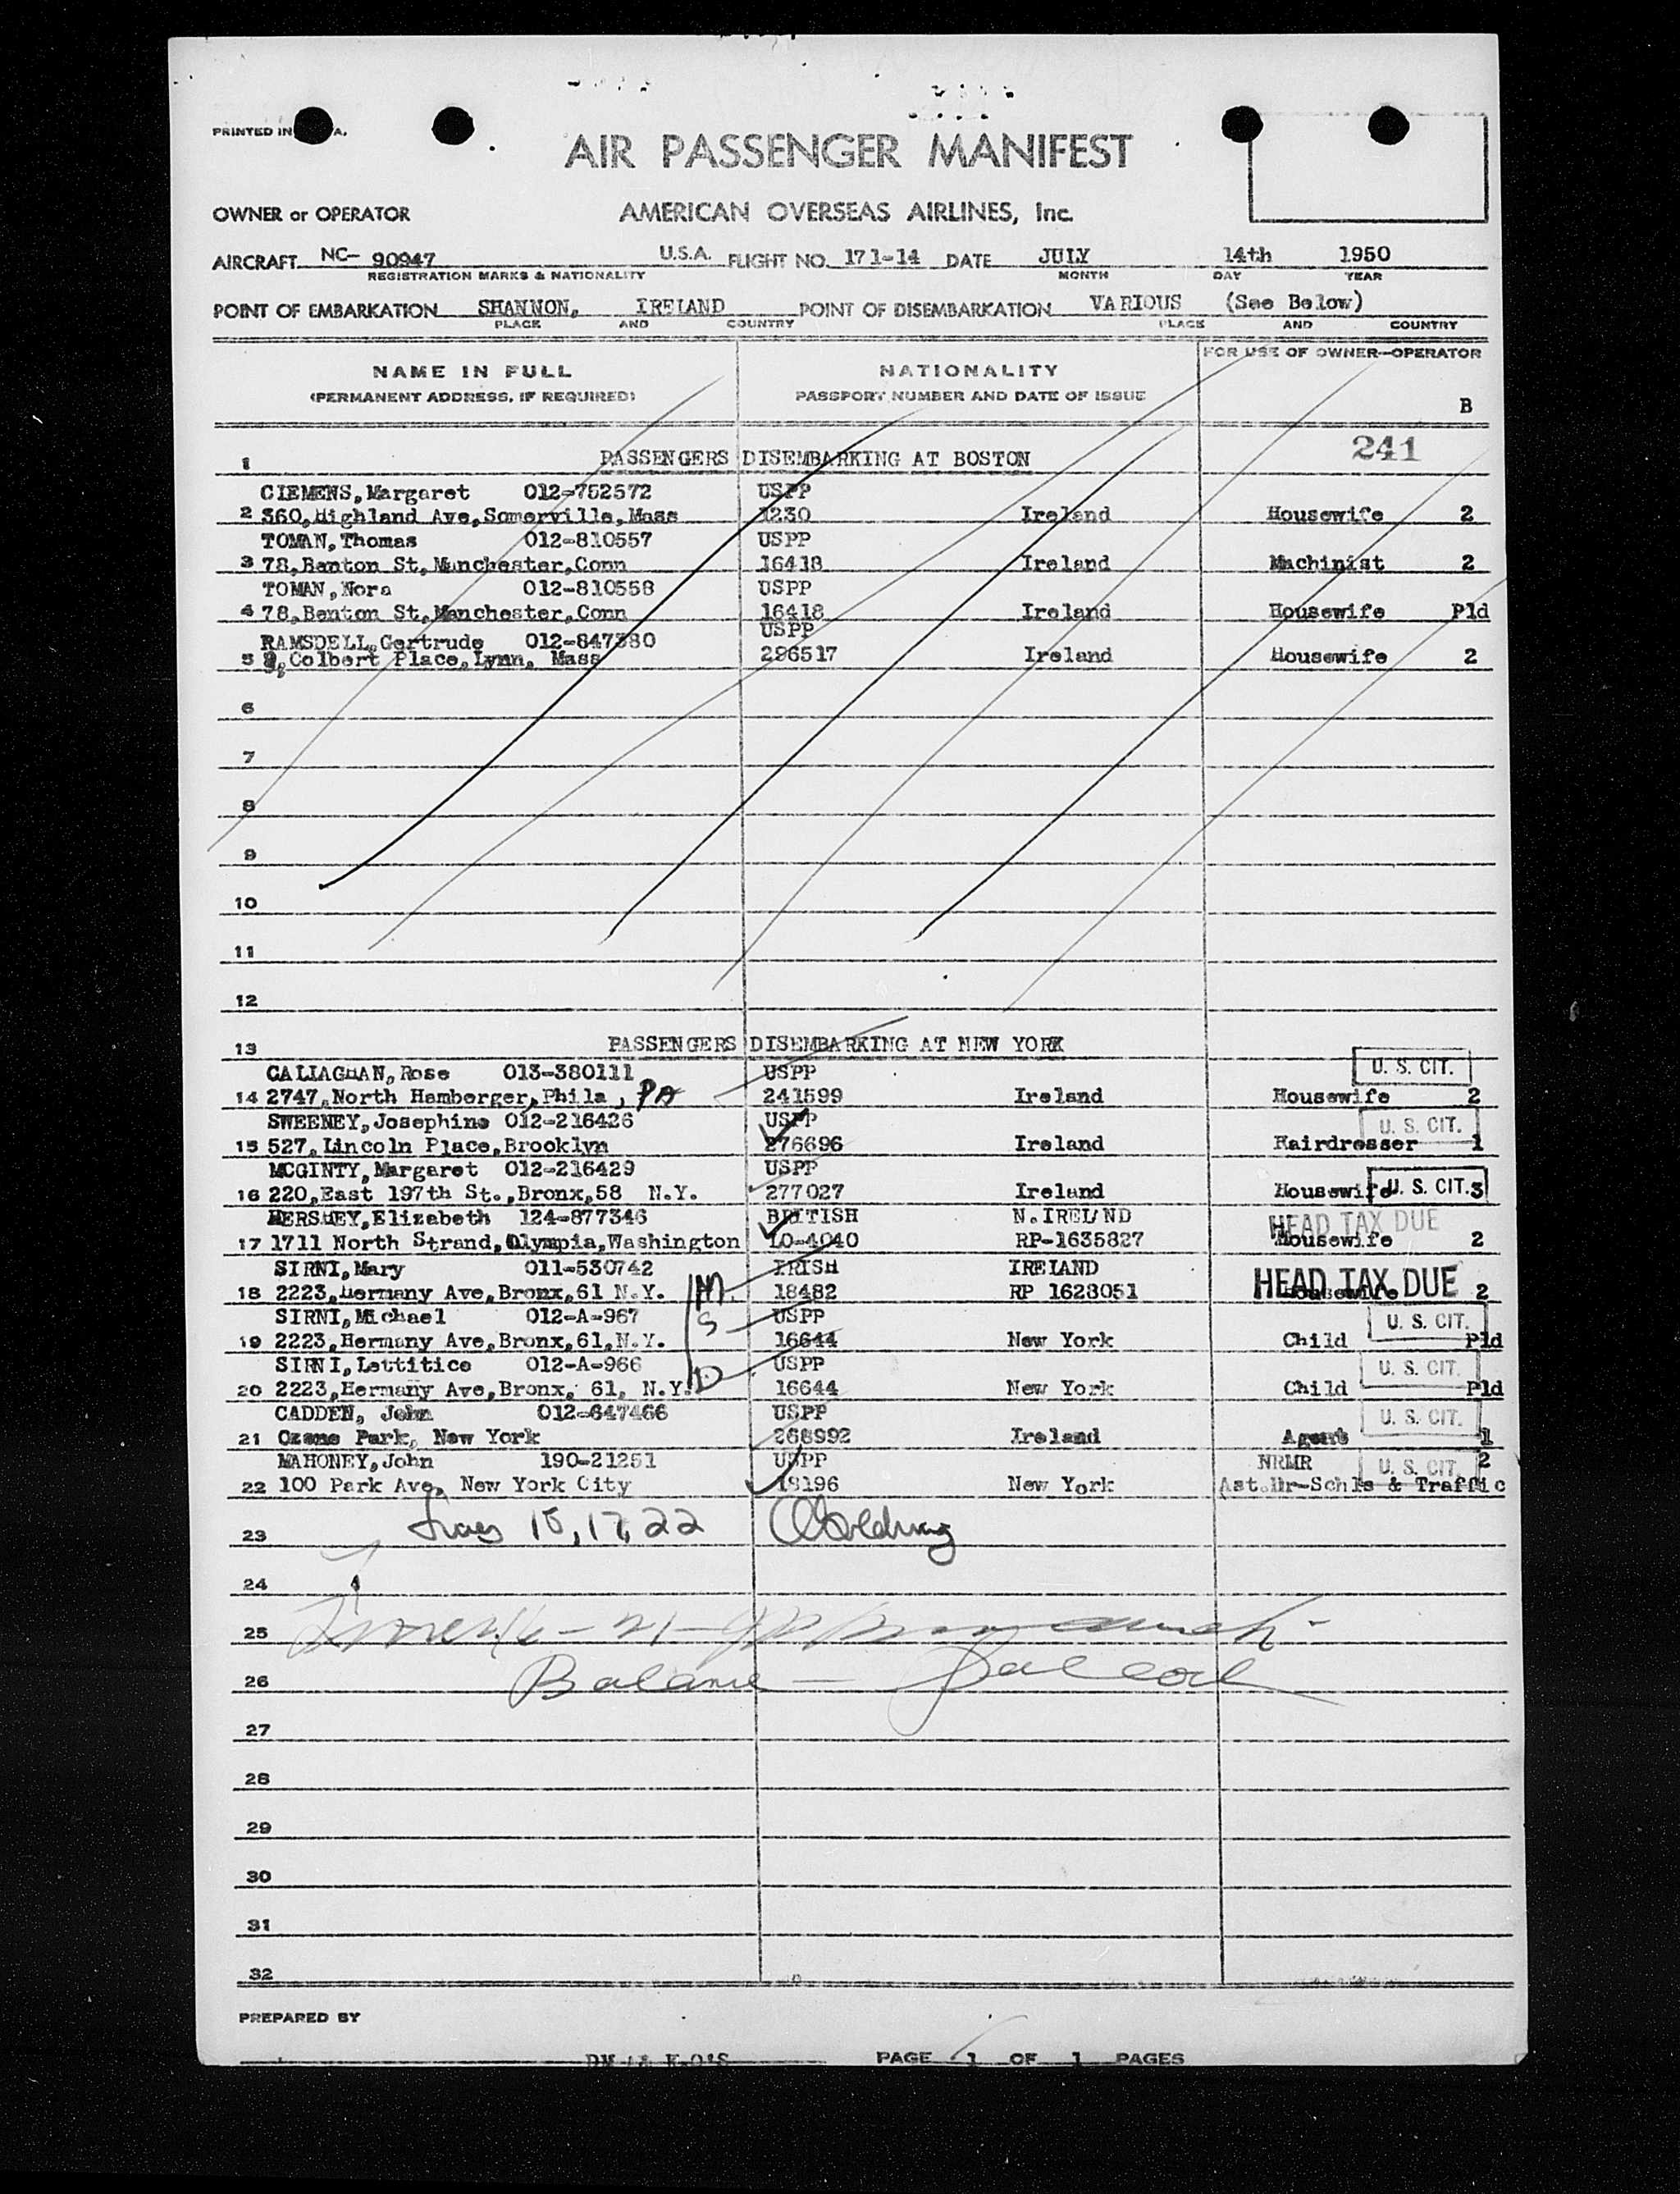 PRINTED IN A.
AIR PASSENGER MANIFEST
OWNER or OPERATOR AMERICAN OVERSEAS AIRLINES, Inc.
AIRCRAFT NC- 90947 U.S.A. FLIGHT NO. 171-14 DATE JULY 14th 1950
REGISTRATION MARKS & NATIONALITY MONTH DAY YEAR
POINT OF EMBARKATION SHANNON, IRELAND POINT OF DISEMBARKATION VARIOUS (See Below)
PLACE AND COUNTRY PLACE AND COUNTRY
NAME IN FULL NATIONALITY FOR USE OF OWNER-OPERATOR
(PERMANENT ADDRESS, IF REQUIRED) PASSPORT NUMBER AND DATE OF ISSUE B
241
1 PASSENGERS DISEMBARKING AT BOSTON
CIEMENS, Margaret 012-752572 USPP
2 360, Highland Ave, Somerville, Mass 1230 Ireland Housewife 2
TOMAN, Thomas 012-810557 USPP
3 78, Benton St, Manchester, Conn 16418 Ireland Machinist 2
TOMAN, Nora 012-810558 USPP
4 78, Benton St, Manchester, Conn 16418 Ireland Housewife Pld
RAMSDELL, Gertrude 012-847380 USPP
5 9, Colbert Place, Lynn, Mass 296517 Ireland Housewife 2
6
7
8
9
10
11
12
13 PASSENGERS DISEMBARKING AT NEW YORK
CALLAGHAN, Rose 013-380111 USPP U. S. CIT.
14 2747, North Hamberger, Phila, PA 241599 Ireland Housewife 2
SWEENEY, Josephine 012-216426 USPP U. S. CIT.
15 527, Lincoln Place, Brooklyn 276696 Ireland Hairdresser 1
MCGINTY, Margaret 012-216429 USPP
16 220, East 197th St., Bronx, 58 N.Y. 277027 Ireland Housewife U. S. CIT. 3
HERSHEY, Elizabeth 124-877346 BRITISH N. IRELAND HEAD TAX DUE
17 1711 North Strand, Olympia, Washington LO-4040 RP-1635827 Housewife 2
SIRNI, Mary 011-530742 IRISH IRELAND HEAD TAX DUE
18 2223, Hermany Ave, Bronx, 61 N.Y. M. 18482 RP 1628051 Housewife 2
SIRNI, Michael 012-A-967 S USPP U. S. CIT.
19 2223, Hermany Ave, Bronx, 61, N.Y. 16644 New York Child Pld
SIRNI, Lettitice 012-A-966 D USPP U. S. CIT.
20 2223, Hermany Ave, Bronx, 61, N.Y. 16644 New York Child Pld
CADDEN, John 012-647466 USPP U. S. CIT.
21 Ozone Park, New York 268992 Ireland Agent 1
MAHONEY, John 190-21251 USPP NRMR U. S. CIT. 2
22 100 Park Ave, New York City 18196 New York Ast.Mr-Schls & Traffic
23 15, 17, 22
24
25
26 Balance
27
28
29
30
31
32
PREPARED BY
PAGE 1 OF 1 PAGES